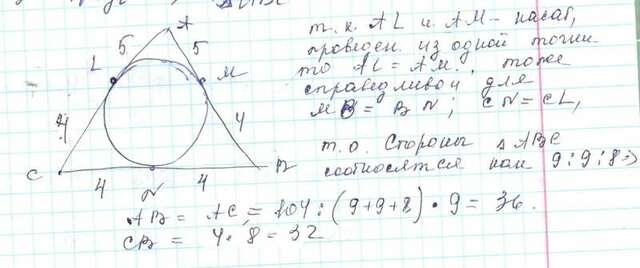 A
5 5
L M
4 4
C B
4 N 4
т. к. AL и AM – касат,
проведен. из одной точки
то AL = AM, тоже
справедливо для
MB = BN; CN = CL,
т. о. Стороны Δ ABC
соотносятся как 9:9:8 ⇒
AB = AC = 104 : (9+9+8) · 9 = 36.
CB = 4 · 8 = 32